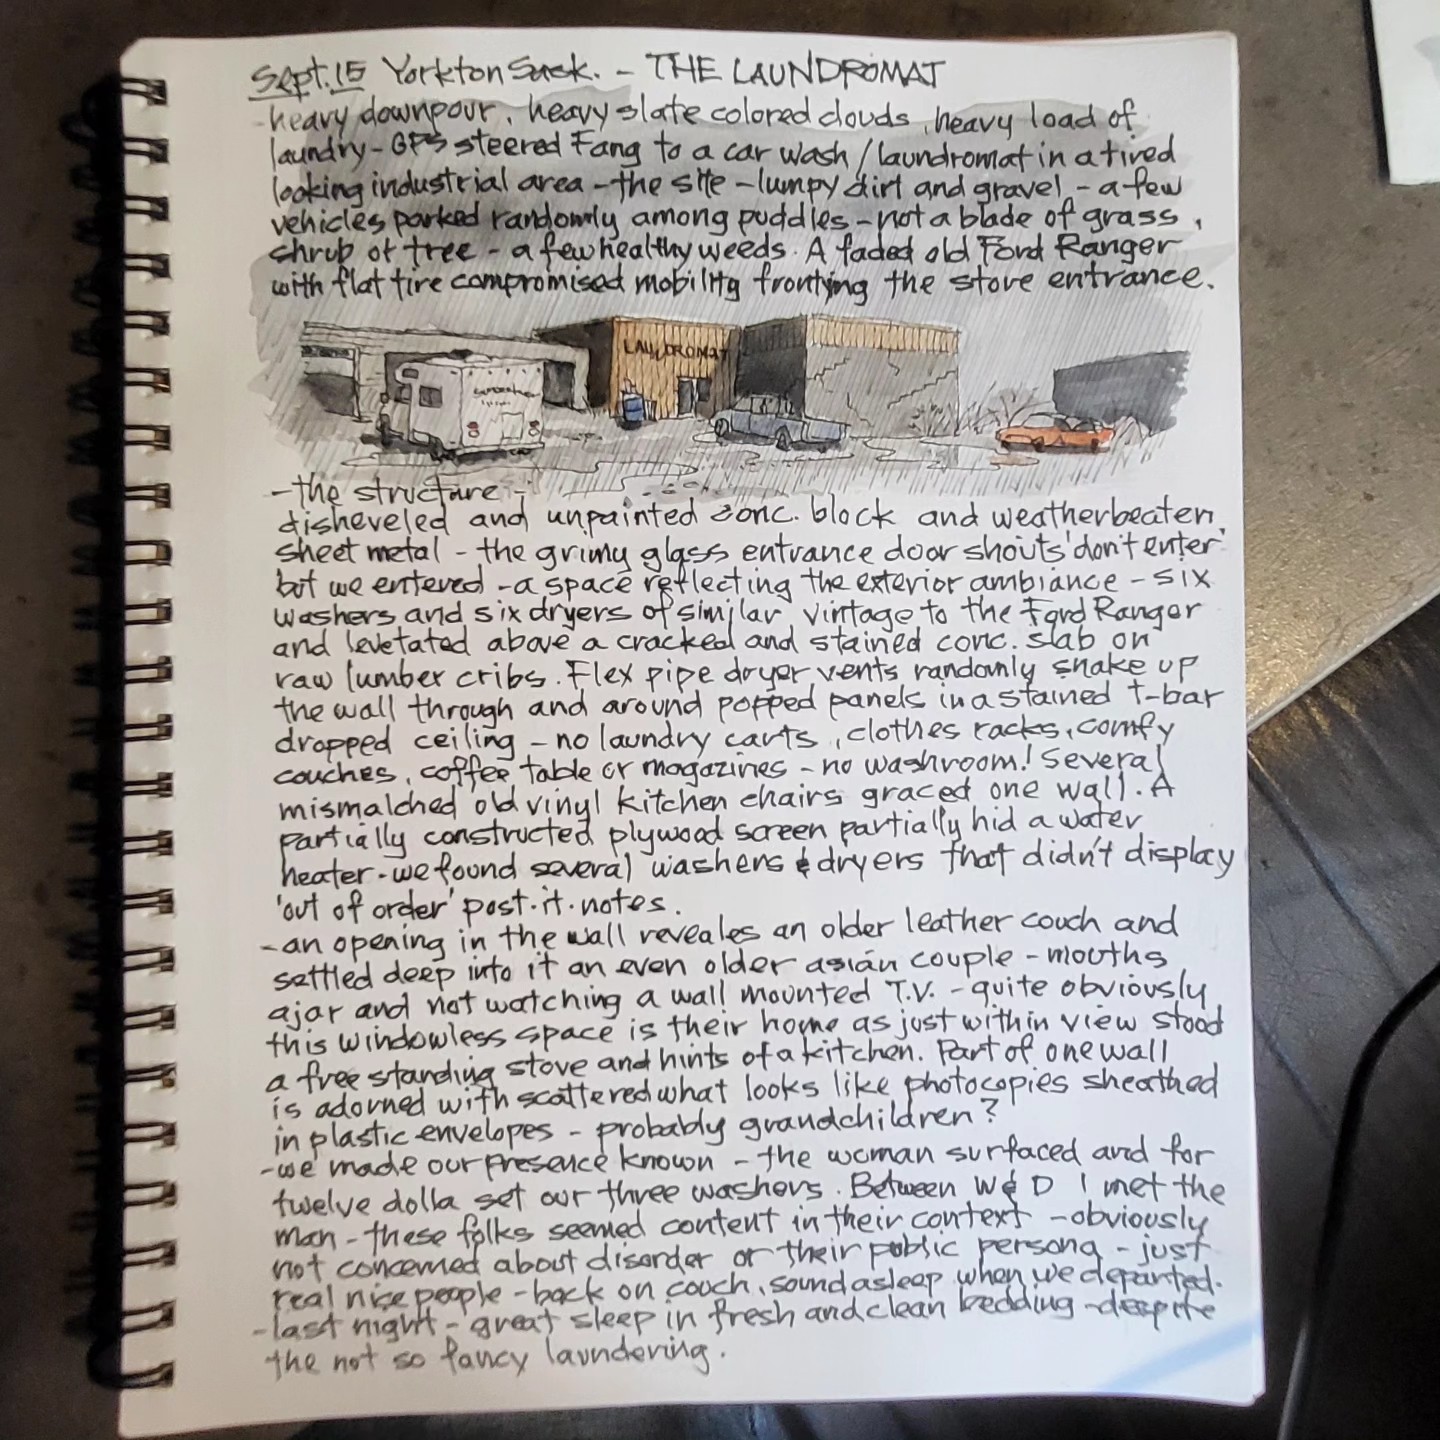 Sept. 15 Yorkton Sask. - THE LAUNDROMAT
- heavy downpour, heavy slate colored clouds, heavy load of
laundry - GPS steered Fang to a car wash / laundromat in a tired
looking industrial area - the site - lumpy dirt and gravel - a few
vehicles parked randomly among puddles - not a blade of grass,
shrub or tree - a few healthy weeds. A faded old Ford Ranger
with flat tire compromised mobility fronting the store entrance.
LAUNDROMAT
- the structure -
disheveled and unpainted conc. block and weatherbeaten,
sheet metal - the grimy glass entrance door shouts 'don't enter'
but we entered - a space reflecting the exterior ambiance - six
washers and six dryers of similar vintage to the Ford Ranger
and levetated above a cracked and stained conc. slab on
raw lumber cribs. Flex pipe dryer vents randomly snake up
the wall through and around popped panels in a stained t-bar
dropped ceiling - no laundry carts, clothes racks, comfy
couches, coffee table or magazines - no washroom! Several
mismatched old vinyl kitchen chairs graced one wall. A
partially constructed plywood screen partially hid a water
heater - we found several washers & dryers that didn't display
'out of order' post-it-notes.
- an opening in the wall reveales an older leather couch and
settled deep into it an even older asian couple - mouths
ajar and not watching a wall mounted T.V. - quite obviously
this windowless space is their home as just within view stood
a free standing stove and hints of a kitchen. Part of one wall
is adorned with scattered what looks like photocopies sheathed
in plastic envelopes - probably grandchildren?
- we made our presence known - the woman surfaced and for
twelve dolla set our three washers. Between W & D I met the
man - these folks seemed content in their context - obviously
not concerned about disorder or their public persona - just
real nice people - back on couch, sound asleep when we departed.
- last night - great sleep in fresh and clean bedding - despite
the not so fancy laundering.